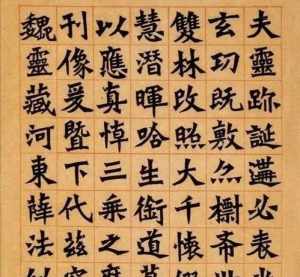 夫靈跡誕遘必表
玄功既敷亦標希世
雙林改照大千懷
慧潛暉哈生銜道
以應真悼三乘之
刊像爰暨下代茲
魏靈藏河東薛法